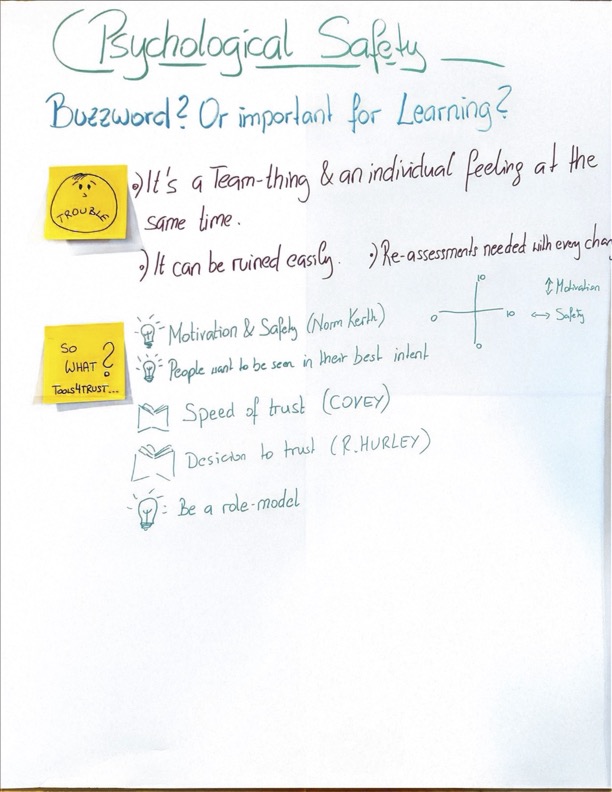 Psychological Safety
Buzzword? Or important for Learning?
TROUBLE
•) It's a Team-thing & an individual feeling at the
same time.
•) It can be ruined easily. •) Re-assessments needed with every chan
SO
WHAT?
TOOLS4TRUST...
: Motivation & Safety (Norm Kerth)
: People want to be seen in their best intent
Speed of trust (COVEY)
Desicion to trust (R. HURLEY)
: Be a role-model
10
0 10
0
↑ Motivation
↔ Safety